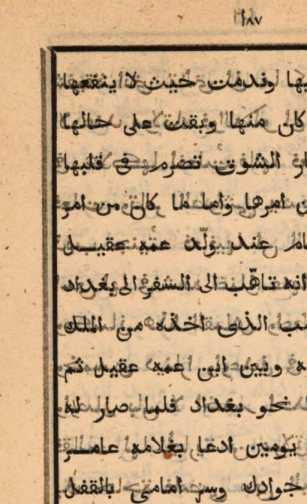 ١٨٧
بها وندمت حيث لا ينفعها
كان منها وبقت على حالها
ار الشوق تضرم في قلبها
امرها واما ما كان من امر
عند يولد عمه عقيل
انه تاهب الى السفر الى بغداد
الذى اخذه من الملك
وبين ابن اعمه عقيل ثم
نحو بغداد فلما صار له
يومين ادعا بغلامه عامر
جوادك وسر امامى بالقفل